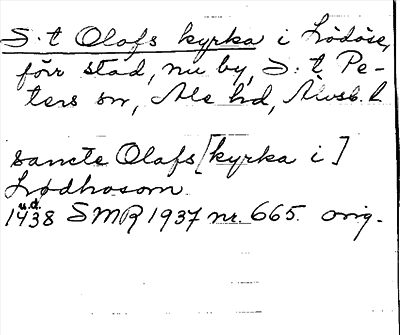 S:t Olofs kyrka i Lödöse,
förr stad, nu by, S:t Pe-
ters sn, Ale hd, Älvsb. l
sancte Olafs [kyrka i]
Lødhosom
u.d.
1438 SMR 1937 nr. 665. orig.